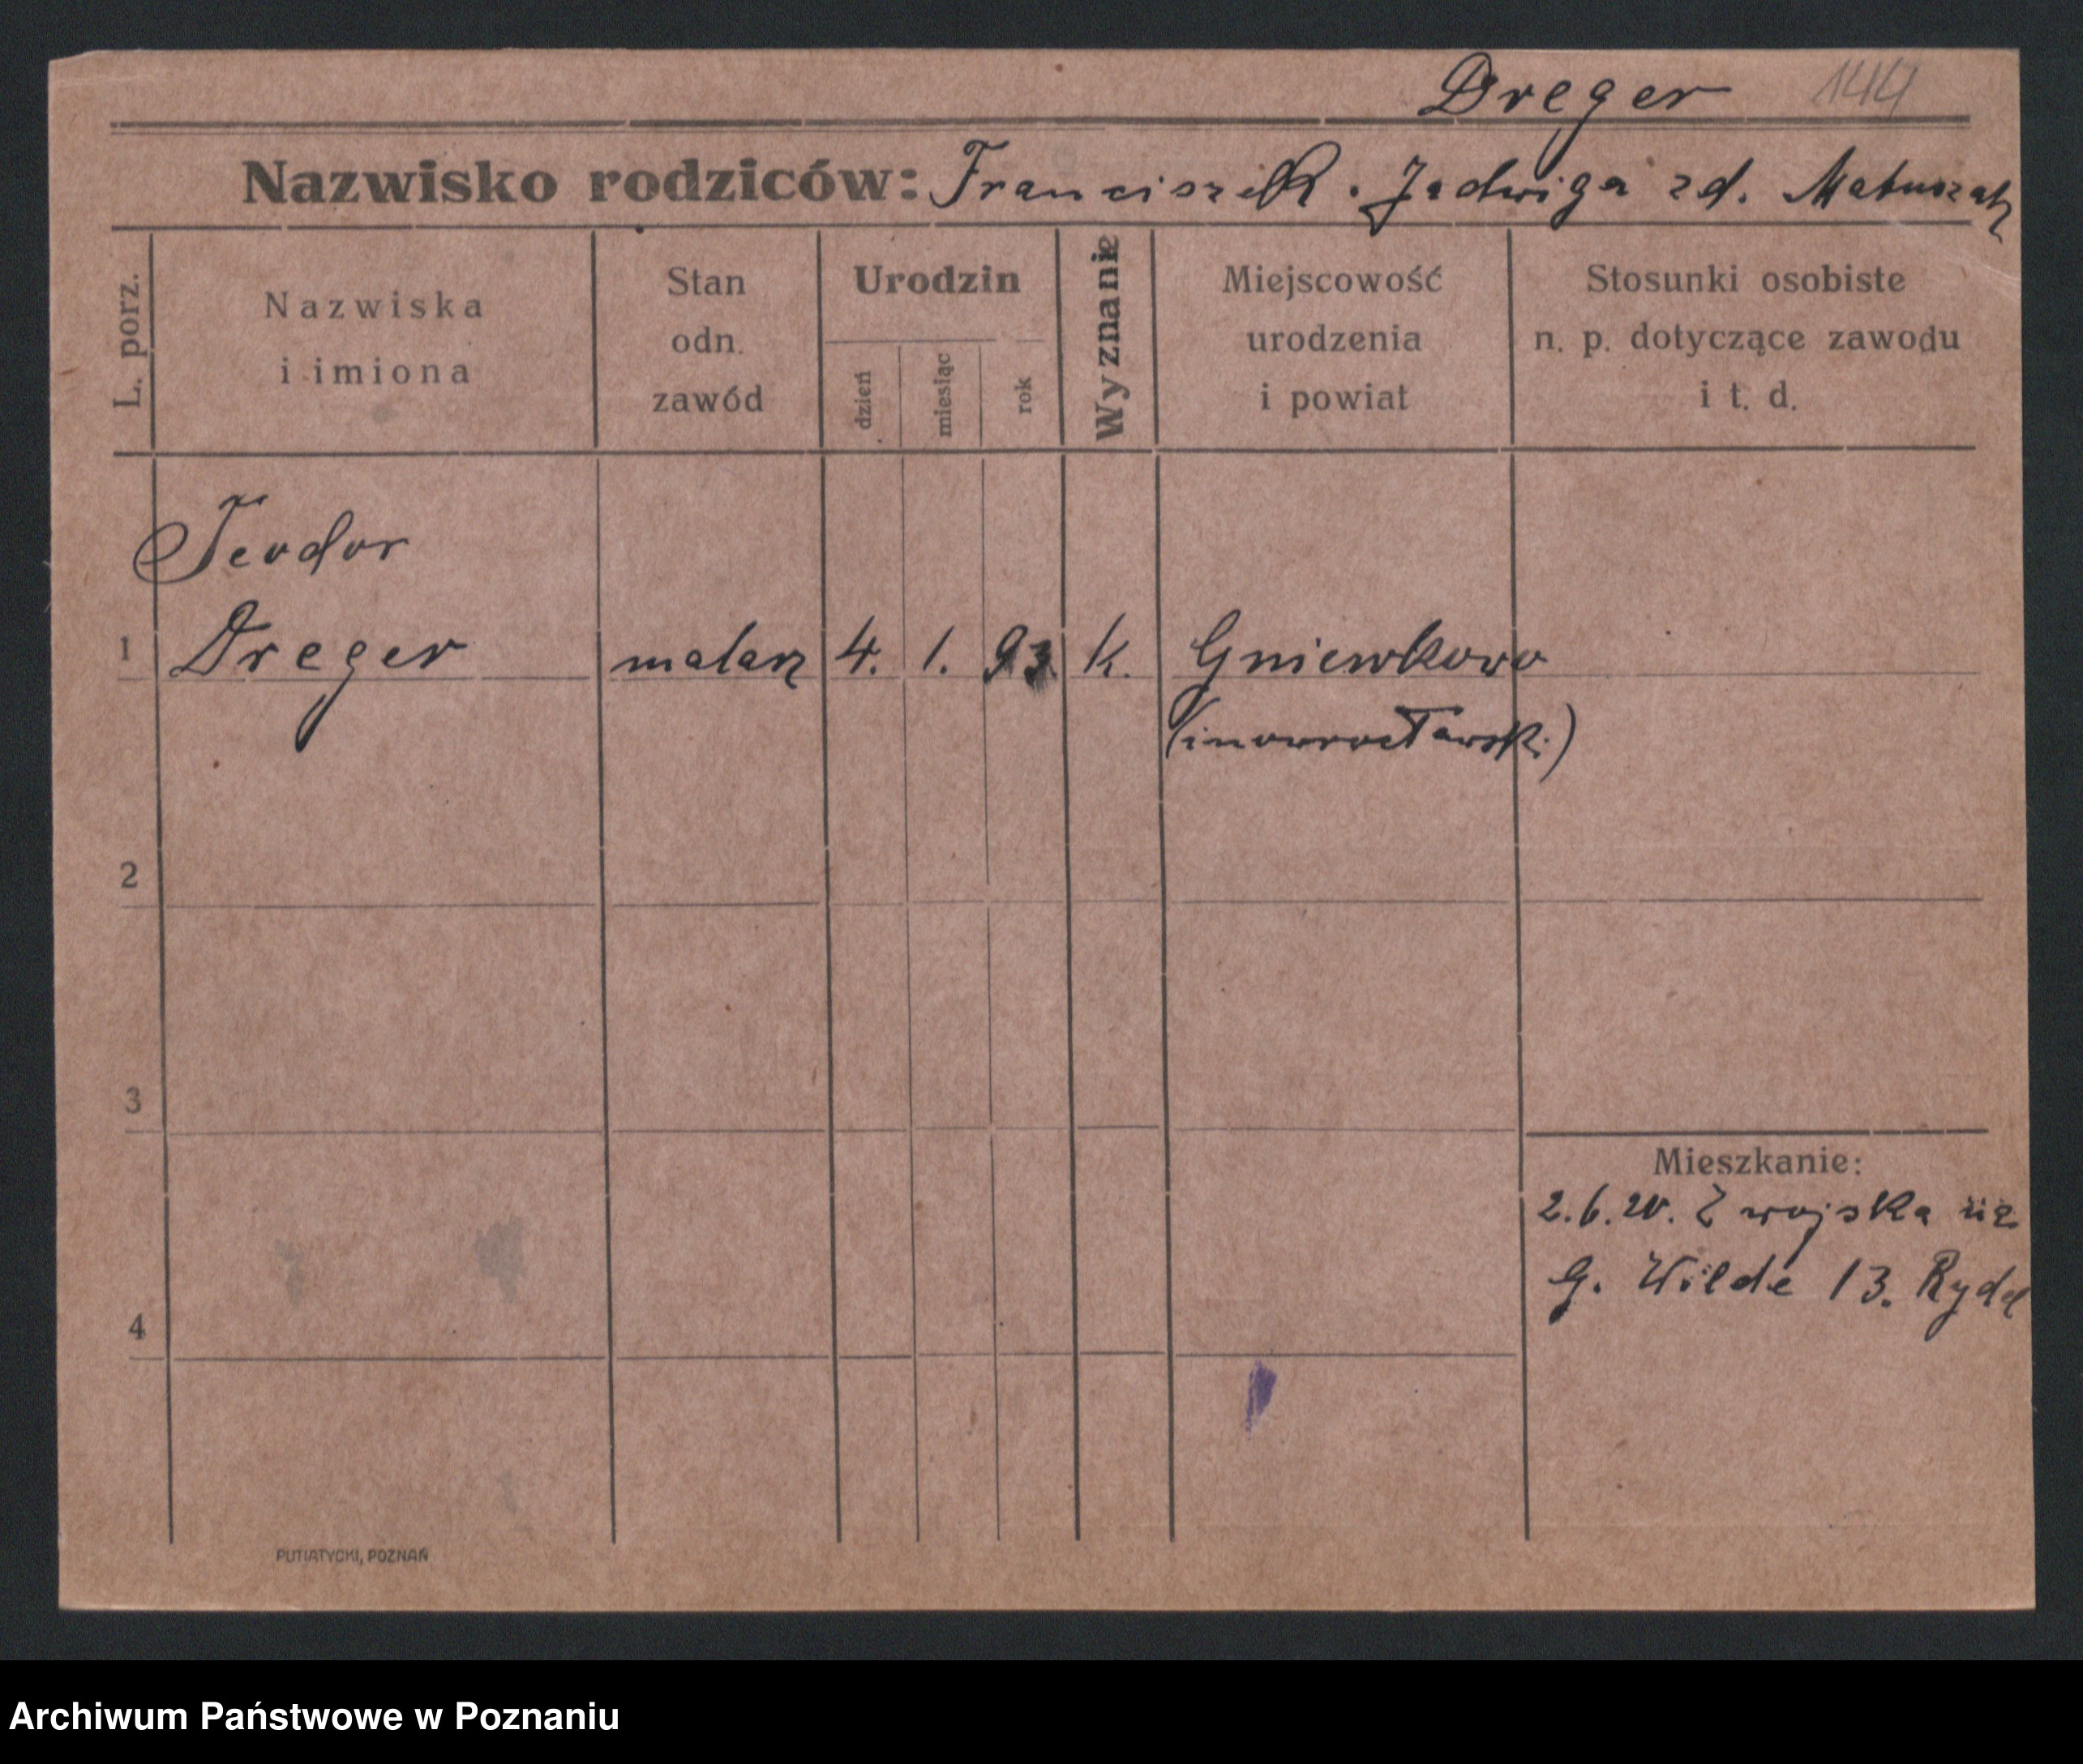 Dreger 144
Nazwisko rodziców: Franciszek . Jadwiga zd. Matuszak
L. porz.
Nazwiska
i imiona
Stan
odn.
zawód
Urodzin
dzień
miesiąc
rok
Wyznanie
Miejscowość
urodzenia
i powiat
Stosunki osobiste
n. p. dotyczące zawodu
i t. d.
Teodor
1 Dreger malarz 4. 1. 93 k. Gniewkowo
(inowrocławski)
2
3
Mieszkanie:
2.6.20. Z wojska
G. Wilde 13.
4
PUTIATYCKI, POZNAŃ
Archiwum Państwowe w Poznaniu